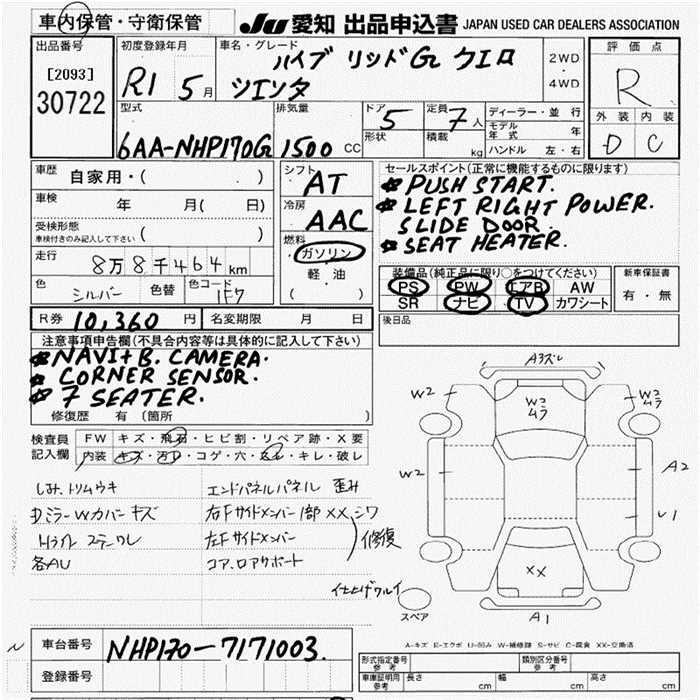 車内保管・守衛保管
JU 愛知 出品申込書 JAPAN USED CAR DEALERS ASSOCIATION
出品番号
[2093]
30722
初度登録年月
R1 5月
車名・グレード
ハイブリッドG クエロ
シエンタ
2WD
・
4WD
評価点
R
外装 内装
D C
型式
6AA-NHP170G
排気量
1500 CC
ドア
5
形状
定員
7人
積載 kg
ディーラー・並行
モデル年式 年
ハンドル 左・右
車歴
自家用・( )
車検 年 月( 日)
受検形態
車検付きのみ記入して下さい ( )
走行
8万8千464km
色
シルバー
色替
色コード
1F7
シフト
AT
冷房
AAC
燃料
ガソリン
軽油
( )
セールスポイント(正常に機能するものに限ります)
PUSH START.
LEFT RIGHT POWER.
SLIDE DOOR
SEAT HEATER.
装備品(純正品に限り○をつけてください)
PS PW エアB AW
SR ナビ TV カワシート
新車保証書
有・無
R券 10,360円
名変期限 月 日
後日品
注意事項申告欄(不具合内容等は具体的に記入して下さい)
NAVI+B. CAMERA.
CORNER SENSOR.
7 SEATER.
修復歴 有 (箇所 )
検査員
記入欄
FW キズ・飛石・ヒビ割・リペア跡・X要
内装 キズ・汚レ・コゲ・穴・スレ・キレ・破レ
しみ、トリムウキ
DミラーWカバーキズ
各AU
エンドパネルパネル 歪み
右Fサイドメンバー1部XX、シワ
左Fサイドメンバー
コア、ロアサポート
修復
仕上げワルイ
A3ズレ
W2
W2
ムラ
W2
ムラ
W2
A2
U1
XX
A1
スペア
A-キズ E-エクボ U-凹み W-補修跡 S-サビ C-腐食 XX-交換済
車台番号
NHP170-7171003.
登録番号
形式指定番号
参考
類別区分番号
参考
車庫証明用
参考
長さ cm 幅 cm 高さ cm